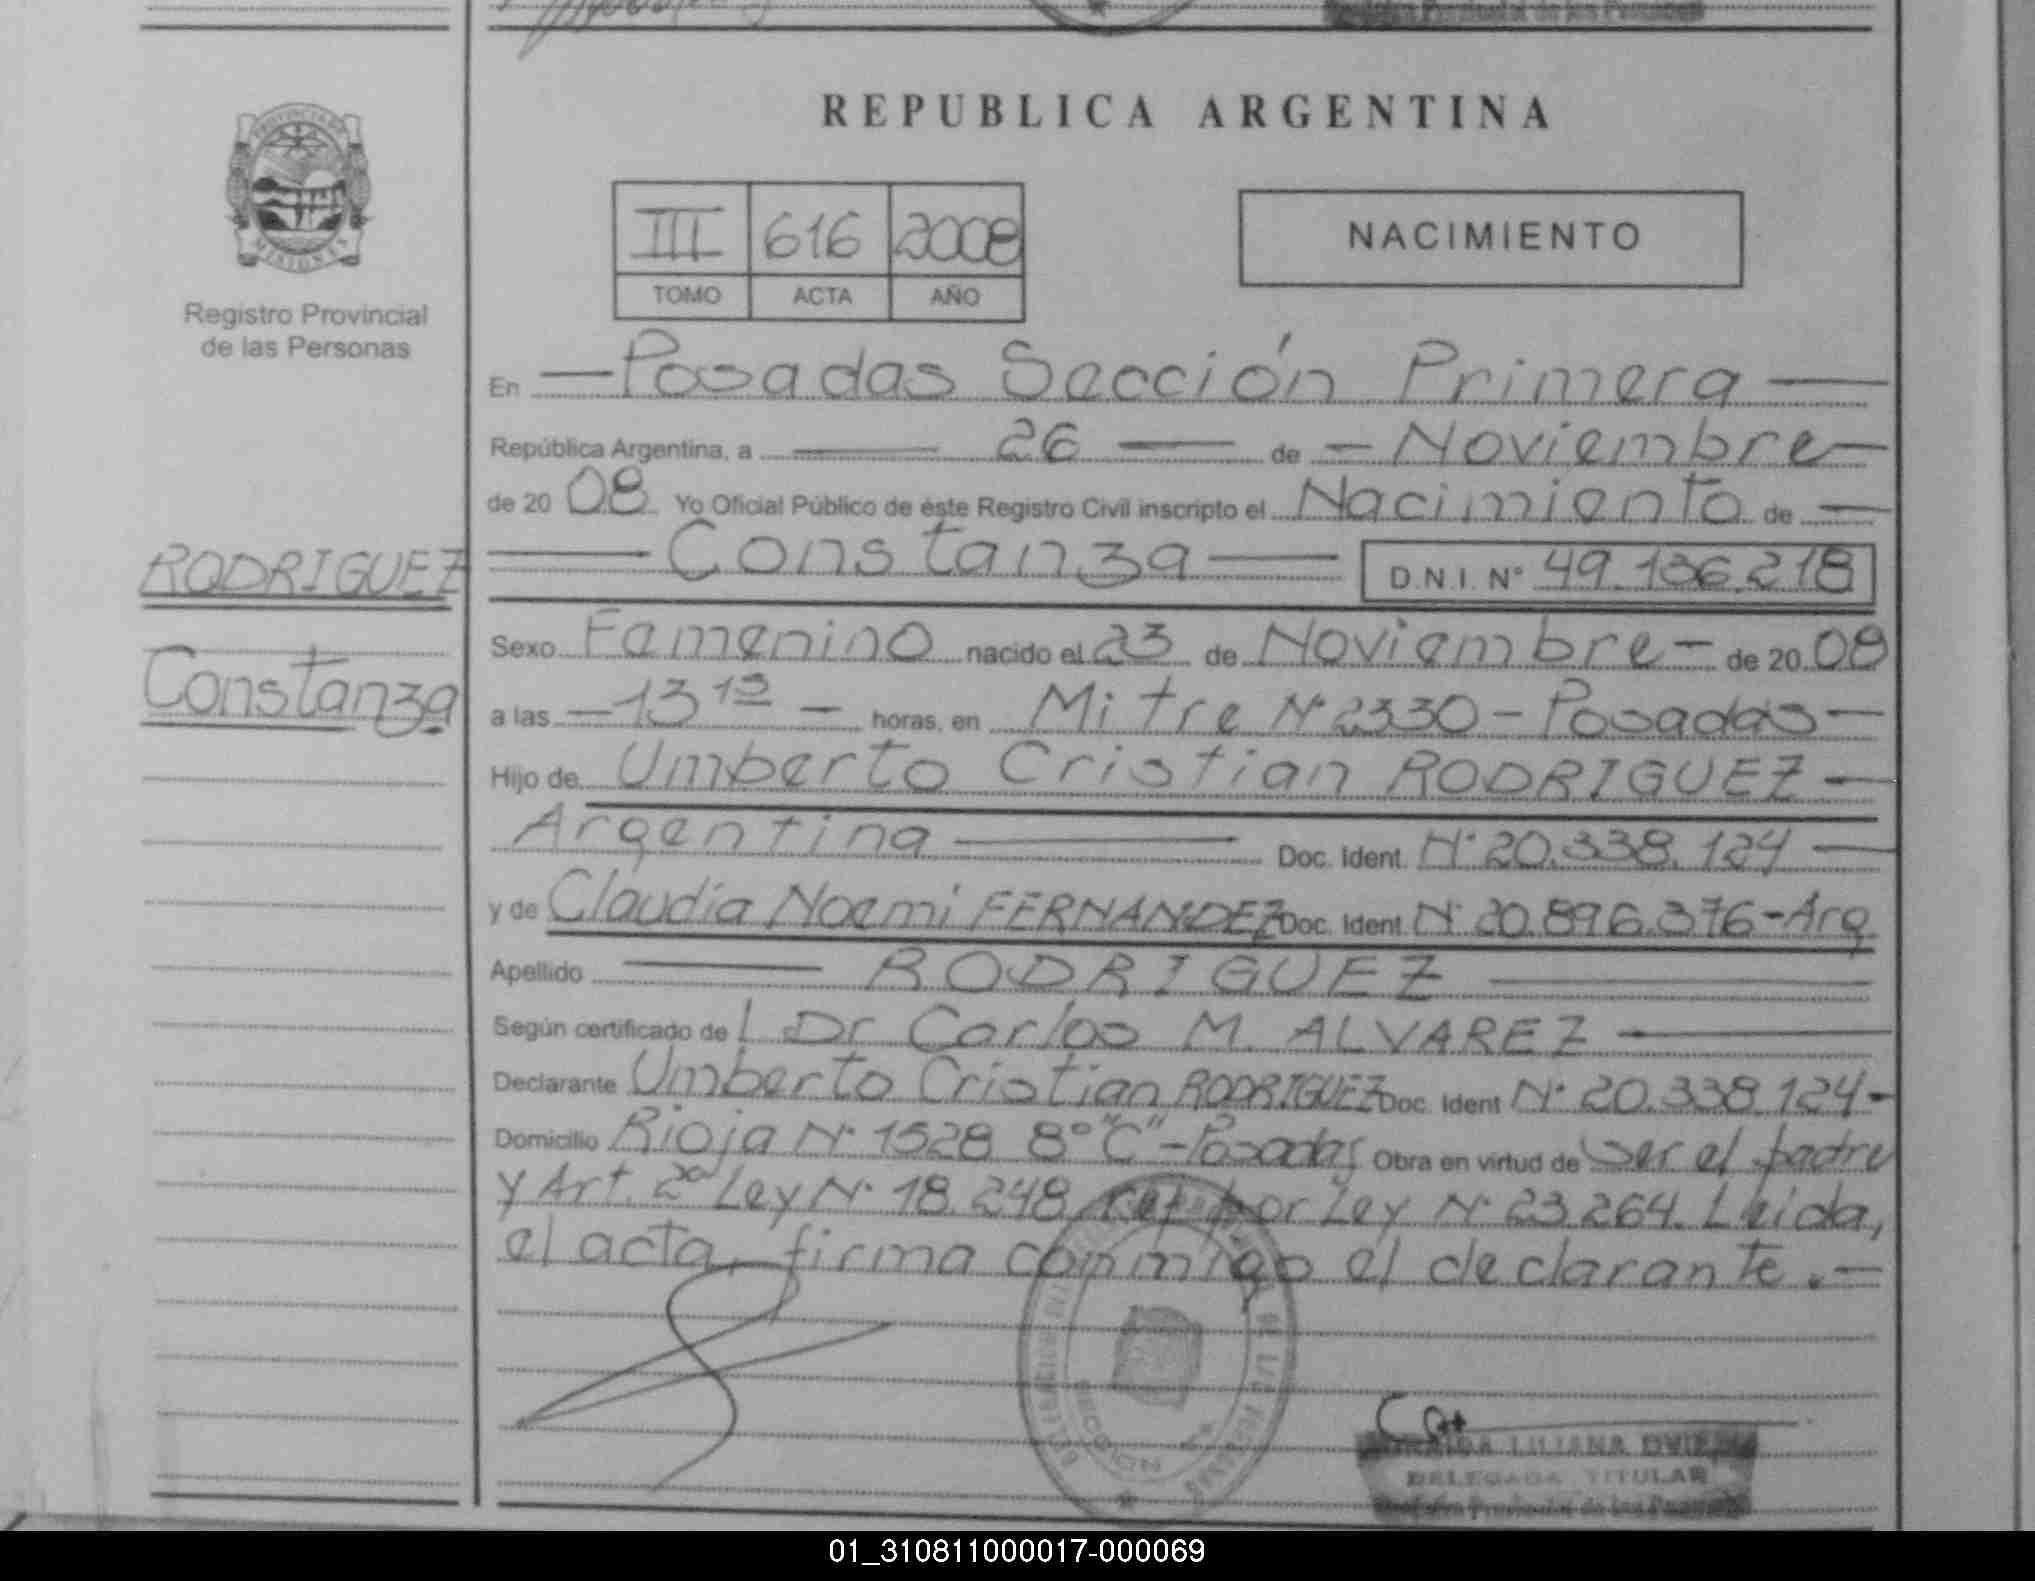 PROVINCIA DE
MISIONES
Registro Provincial
de las Personas
RODRIGUEZ
Constanza
REPUBLICA ARGENTINA
III 616 2008
TOMO ACTA AÑO
NACIMIENTO
En Posadas Sección Primera
República Argentina, a 26 de Noviembre
de 2008 Yo Oficial Público de éste Registro Civil inscripto el Nacimiento de
Constanza D.N.I. N° 49.136.218
Sexo Femenino nacido el 23 de Noviembre de 2008
a las 13 15 horas, en Mitre N° 2330 - Posadas
Hijo de Umberto Cristian RODRIGUEZ
Argentina Doc. Ident. N° 20.338.124
y de Claudia Noemi FERNANDEZ Doc. Ident. N° 20.896.376-Arg
Apellido RODRIGUEZ
Según certificado de l Dr Carlos M. ALVAREZ
Declarante Umberto Cristian RODRIGUEZ Doc. Ident N° 20.338.124-
Domicilio Rioja N° 1528 8° "C" - Posadas Obra en virtud de ser el padre
y Art. 2° Ley N° 18.248 ref por Ley N° 23.264. Leida,
el acta, firma conmigo el declarante.-
LILIANA
DELEGADA TITULAR
Registro Provincial de las Personas
01_310811000017-000069